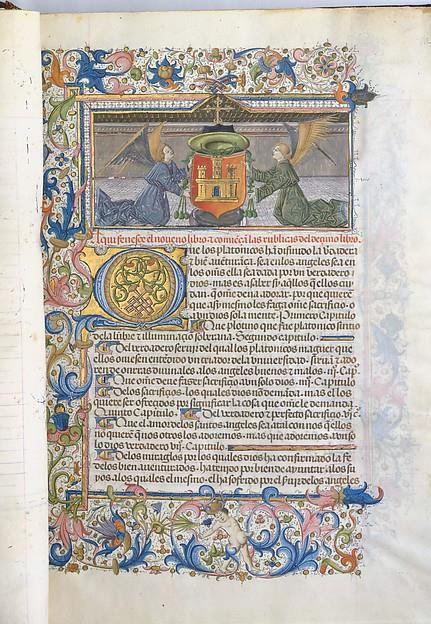 Aqui fenesce el noueno libro. ⁊ comiẽça las rublicas del deçimo libro.
Que los platonicos ha difinido la v̉dadera
⁊ biẽ auẽturãça. sea en los angeles sea en
los om̃s ella sea dada por vn verdadero
dios. mas es a saber si aq̃llos q̃ ellos cuy
dan. q̃ om̃e deua adorar. por que quieren
que a sy mesmo les faga om̃e sacrifiçio. o
a vn dios sola mente. Primero Capitulo
Que plotino que fue platonico sintio
de la lũbre ⁊ illuminaçiõ soberana. Segundo capitulo.
Del verdadero seruiçio del qual los platonicos maguer que
ellos ouiesen entẽdido vn criador de la vniuersidad
onrras diuinales. a los angeles buenos ⁊ malos. iij. Cap.º
Que om̃e deue fazer sacrifiçio a vn solo dios. iiij. Capitulo
De los sacrifiçios. los quales dios nõ demãda. mas el los
quiere ser ofreçidos por significar la cosa que om̃e le demanda.
Quinto Capitulo. Del verdadero ⁊ perfecto sacrifiçio. vj. cº.
Que el amor de los santos angeles sea atal con nos q̃ ellos
no quierẽ q̃ nos otros los adoremos. mas que adoremos a vn so
lo dios verdadero vij. Capitulo.
De los miraglos por los quales dios ha confirmado la fe
de los bien auenturados. ha tenpo por bien de ayuntar. a los su
yos. a los quales el mesmo. el ha por el de angeles